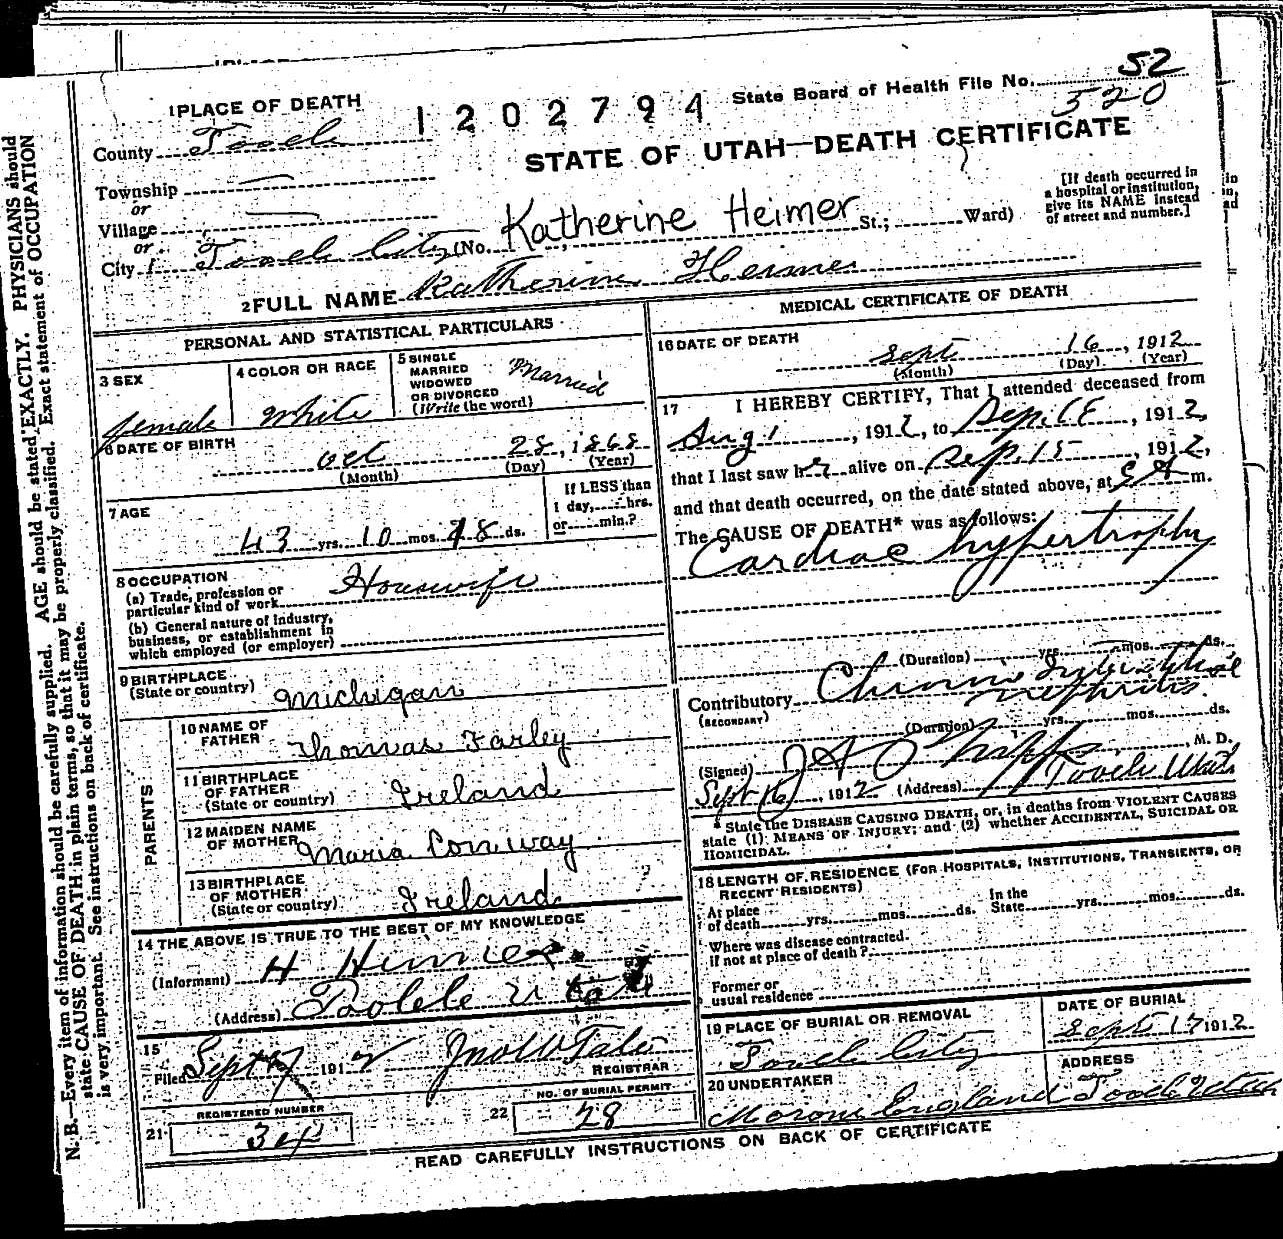 1 PLACE OF DEATH
1202794
State Board of Health File No. 52
520
County Tooele
STATE OF UTAH—DEATH CERTIFICATE
Township
or
Village
or
City Tooele City (No. Katherine Heimer St.; Ward)
[If death occurred in
a hospital or institution,
give its NAME instead
of street and number.]
2 FULL NAME Katherine Heimer
PERSONAL AND STATISTICAL PARTICULARS
3 SEX
female
4 COLOR OR RACE
White
5 SINGLE
MARRIED
WIDOWED
OR DIVORCED
(Write the word)
Married
6 DATE OF BIRTH
Oct 28, 1868
(Month) (Day) (Year)
7 AGE
43 yrs. 10 mos. 18 ds.
If LESS than
1 day, hrs.
or min.?
8 OCCUPATION
(a) Trade, profession or
particular kind of work Housewife
(b) General nature of Industry,
business, or establishment in
which employed (or employer)
9 BIRTHPLACE
(State or country) Michigan
PARENTS
10 NAME OF
FATHER Thomas Farley
11 BIRTHPLACE
OF FATHER
(State or country) Ireland
12 MAIDEN NAME
OF MOTHER Maria Conway
13 BIRTHPLACE
OF MOTHER
(State or country) Ireland
14 THE ABOVE IS TRUE TO THE BEST OF MY KNOWLEDGE
(Informant) H
(Address) Tooele Utah
15
Filed Sept 17 1912
REGISTRAR
REGISTERED NUMBER
21
22
NO. OF BURIAL PERMIT
28
MEDICAL CERTIFICATE OF DEATH
16 DATE OF DEATH
Sept 16, 1912
(Month) (Day) (Year)
17 I HEREBY CERTIFY, That I attended deceased from
Aug 1, 1912, to Sep., 1912,
that I last saw her alive on Sep. 15, 1912,
and that death occurred, on the date stated above, at A m.
The CAUSE OF DEATH* was as follows:
Cardiac hypertrophy
(Duration) yrs. mos. ds.
Contributory Chronic Interstitial
(SECONDARY) nephritis.
(Duration) yrs. mos. ds.
(Signed) M. D.
Sept 16, 1912 (Address) Tooele Utah
* State the DISEASE CAUSING DEATH, or, in deaths from VIOLENT CAUSES
state (1) MEANS OF INJURY; and (2) whether ACCIDENTAL, SUICIDAL OR
HOMICIDAL.
18 LENGTH OF RESIDENCE (FOR HOSPITALS, INSTITUTIONS, TRANSIENTS, OR
RECENT RESIDENTS)
At place
of death yrs. mos. ds.
In the
State yrs. mos. ds.
Where was disease contracted.
if not at place of death?
Former or
usual residence
19 PLACE OF BURIAL OR REMOVAL
Tooele City
DATE OF BURIAL
Sept 17 1912
20 UNDERTAKER
Moroni England
ADDRESS
Tooele Utah
READ CAREFULLY INSTRUCTIONS ON BACK OF CERTIFICATE
N. B.—Every item of information should be carefully supplied. AGE should be stated EXACTLY. PHYSICIANS should
state CAUSE OF DEATH in plain terms, so that it may be properly classified. Exact statement of OCCUPATION
is very important. See instructions on back of certificate.